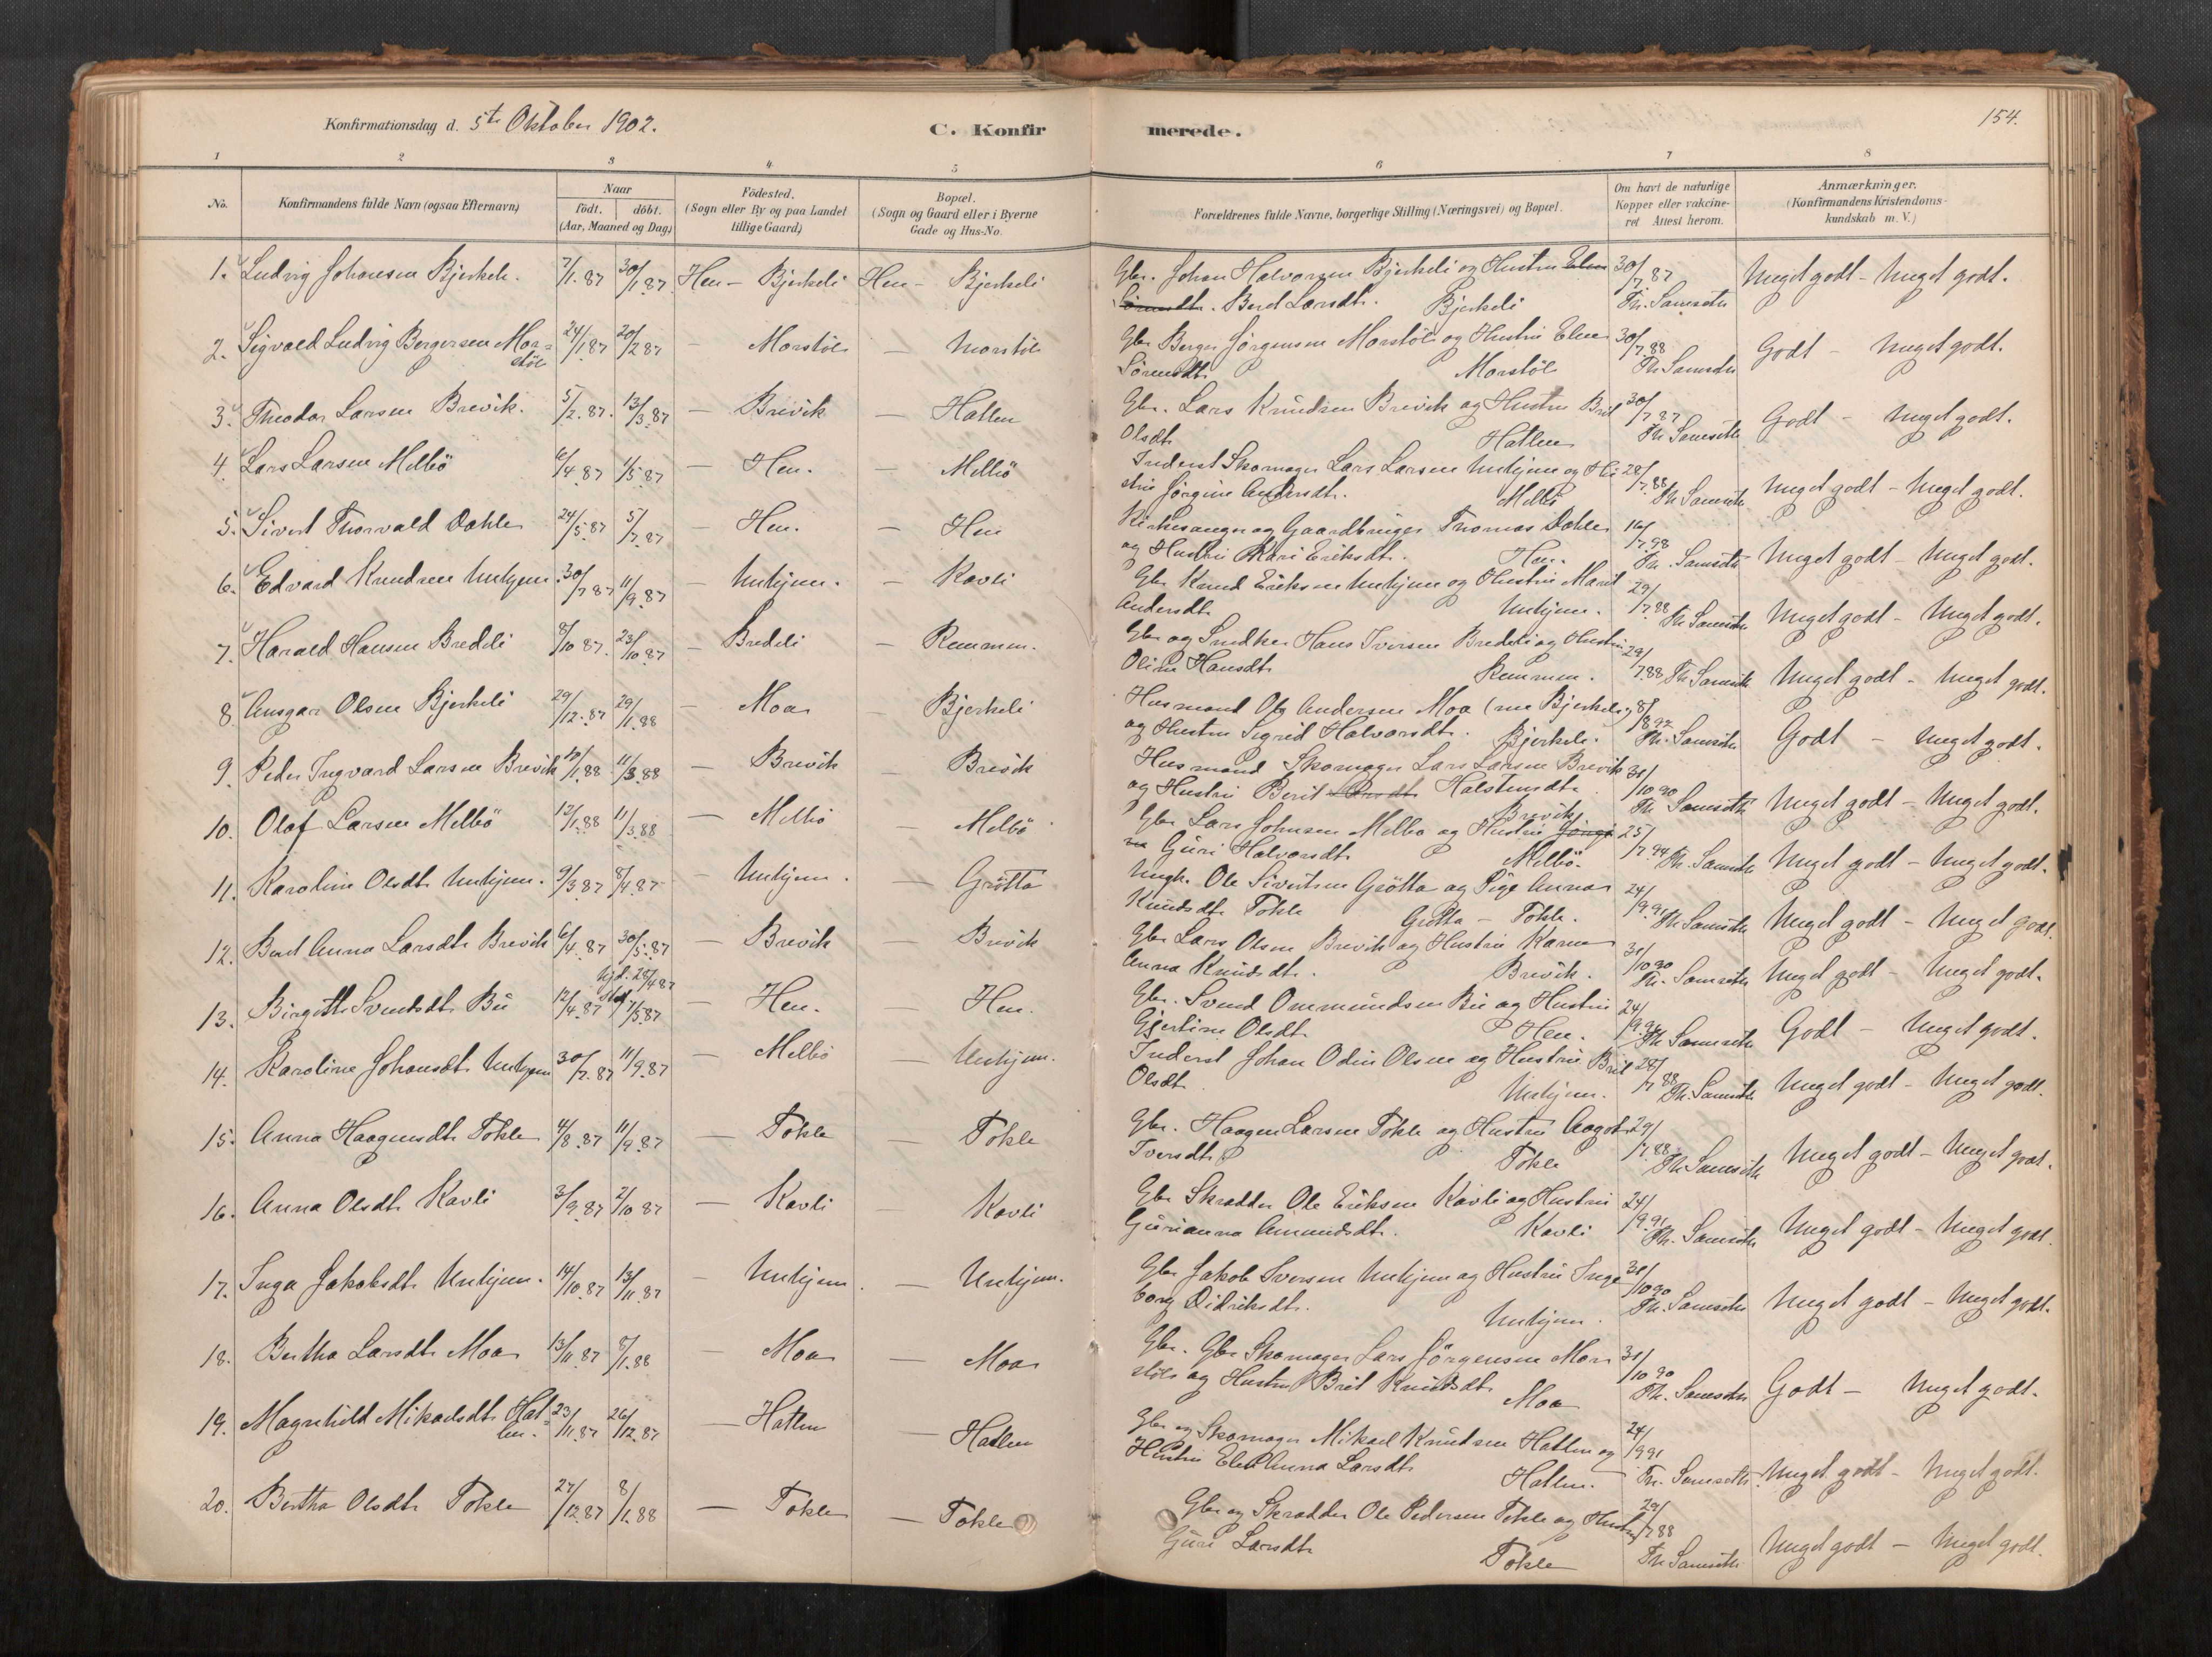 Konfirmationsdag d. 5te Oktober 1902.
C. Konfirmerede.
154.
1 2 3 4 5 6 7 8
No.
Konfirmandens fulde Navn (ogsaa Efternavn)
Naar
födt. döbt.
(Aar, Maaned og Dag)
Födested.
(Sogn eller By og paa Landet
tillige Gaard)
Bopæl.
(Sogn og Gaard eller i Byerne
Gade og Hus-No.
Forældrenes fulde Navne, borgerlige Stilling (Næringsvei) og Bopæl.
Om havt de naturlige
Kopper eller vakcine-
ret Attest herom.
Anmærkninger.
(Konfirmandens Kristendoms-
kundskab m. V.)
1. Ludvig Johansen Bjerkeli. 7/1.87 30/1.87 Hen - Bjerkeli Hen - Bjerkeli
Gbr. Johan Halvorsen Bjerkeli og Hustru Elen 30/7.87 Meget godt - Meget godt.
Sörensdt. Berit Larsdt. Bjerkeli Th. Samseth
2. Sigvald Ludvig Bergersen Mor= 24/1.87 20/2.87 — Morstöl — Morstöl
stöl
Gbr Berger Jörgensen Morstöl og Hustru Elen 30/7.88 Godt - Meget godt.
Sörensdt. Morstöl Th. Samseth
3. Theodor Larsen Brevik. 5/2.87. 13/3.87 — Brevik — Hatlen
Gbr. Lars Knudsen Brevik og Hustru Brit 30/7.87 Godt - Meget godt.
Olsdt Hatlen Th. Samseth
4. Lars Larsen Melbö 6/4.87 1/5.87 — Hen. — Melbö
Inderst Skomager Lars Larsen Unhjem og Hu 28/7.88 Meget godt - Meget godt.
stru Jörgine Andersdt. Melbö Th. Samseth
5. Sivert Thorvald Dahle 24/5.87 5/7.87 — Hen. — Hen
Kirkesanger og Gaardbruger Thomas Dahle 16/7.98 Meget godt - Meget godt.
og Hustru Kari Eriksdt. Hen. Th. Samseth
6. Edvard Knudsen Unhjem. 30/7.87 11/9.87 Unhjem. — Kavli
Gbr Knud Eriksen Unhjem og Hustru Marit 29/7.88 Meget godt - Meget godt.
Andersdt. Unhjem. Th. Samseth
7. Harald Hansen Bredeli 8/10 87. 23/10.87 — Bredeli — Remmem.
Gbr og Snedker Hans Iversen Bredeli og Hustru 29/7.88 Meget godt - Meget godt.
Oline Hansdt. Remmem. Th. Samseth
8. Ansgar Olsen Bjerkeli 29/12.87 29/1.88 — Moa — Bjerkeli
Husmand Ole Andersen Moa (nu Bjerkeli) 8/8 92 Godt - Meget godt.
og Hustru Sigrid Halvorsdt. Bjerkeli. Th. Samseth
9. Peder Ingvard Larsen Brevik 10/1.88 11/3.88 — Brevik — Brevik
Husmand Skomager Lars Larsen Brevik 31/10 90 Meget godt - Meget godt.
og Hustru Berit Halstensdt. Brevik. Th. Samseth
10. Olaf Larsen Melbö 12/1.88 11/3.88 — Melbö — Melbö
Gbr Lars Johnsen Melbö og Hustru Jörgi 25/7.94 Meget godt - Meget godt.
ne Guri Halvorsdt. Melbö. Th. Samseth
11. Karoline Olsdt. Unhjem. 9/3.87 8/4.87 — Unhjem. — Grötta
Ungk. Ole Sivertsen Grötta og Pige Anna 24/9.91 Meget godt - Meget godt.
Knudsdt. Tokle Grötta - Tokle. Th. Samseth
12. Berit Anna Larsdt. Brevik 6/4.87 30/5.87 — Brevik — Brevik
Gbr Lars Olsen Brevik og Hustru Karen 31/10 90 Meget godt - Meget godt.
Anna Knudsdt. Brevik. Th. Samseth
13. Birgitte Svendsdt. Bu 12/4.87 hjd. 28/4 87 stf. 7/5.87 — Hen. — Hen.
Gbr. Svend Ommundsen Bu og Hustru 24/9.91 Godt - Meget godt.
Gjertine Olsdt. Hen. Th. Samseth
14. Karoline Johansdt. Unhjem 30/7.87 11/9.87 — Melbö — Unhjem.
Inderst Johan Odin Olsen og Hustru Brit 28/7 88 Meget godt - Meget godt.
Olsdt. Unhjem. Th. Samseth
15. Anna Haagensdt. Tokle 4/8.87 11/9.87 — Tokle — Tokle
Gbr. Haagen Larsen Tokle og Hustru Aagot 29/7.88 Meget godt - Meget godt.
Iversdt. Tokle Th. Samseth
16. Anna Olsdt. Kavli 3/9.87 2/10 87 — Kavli — Kavli
Gbr Skrædder Ole Eriksen Kavli og Hustru 24/9.91 Meget godt - Meget godt.
Gurianna Amundsdt. Kavli Th. Samseth
17. Inga Jakobsdt. Unhjem. 14/10.87 13/11.87 — Unhjem. — Unhjem.
Gbr Jakob Iversen Unhjem og Hustru Inge 31/10 90 Meget godt - Meget godt.
borg Didriksdt. Unhjem. Th. Samseth
18. Bertha Larsdt. Moa 13/11.87 8/1.88 — Moa — Moa
Gbr. Gbr Skomager Lars Jörgensen Mor 31/10 90 Godt - Meget godt.
stöl og Hustru Brit Knudsdt. Moa Th. Samseth
19. Magnhild Mikaelsdt. Hat= 23/11.87 26/12.87 — Hatlen — Hatlen
len.
Gbr og Skomager Mikael Knudsen Hatlen og 24/9 91 Meget godt - Meget godt.
Hustru Elen Anna Larsdt. Hatlen. Th. Samseth
20. Bertha Olsdt. Tokle 27/12.87 8/1.88 — Tokle — Tokle
Gbr og Skrædder Ole Pedersen Tokle og Hustru 29/7 88 Meget godt - Meget godt.
Guri Larsdt. Tokle Th. Samseth